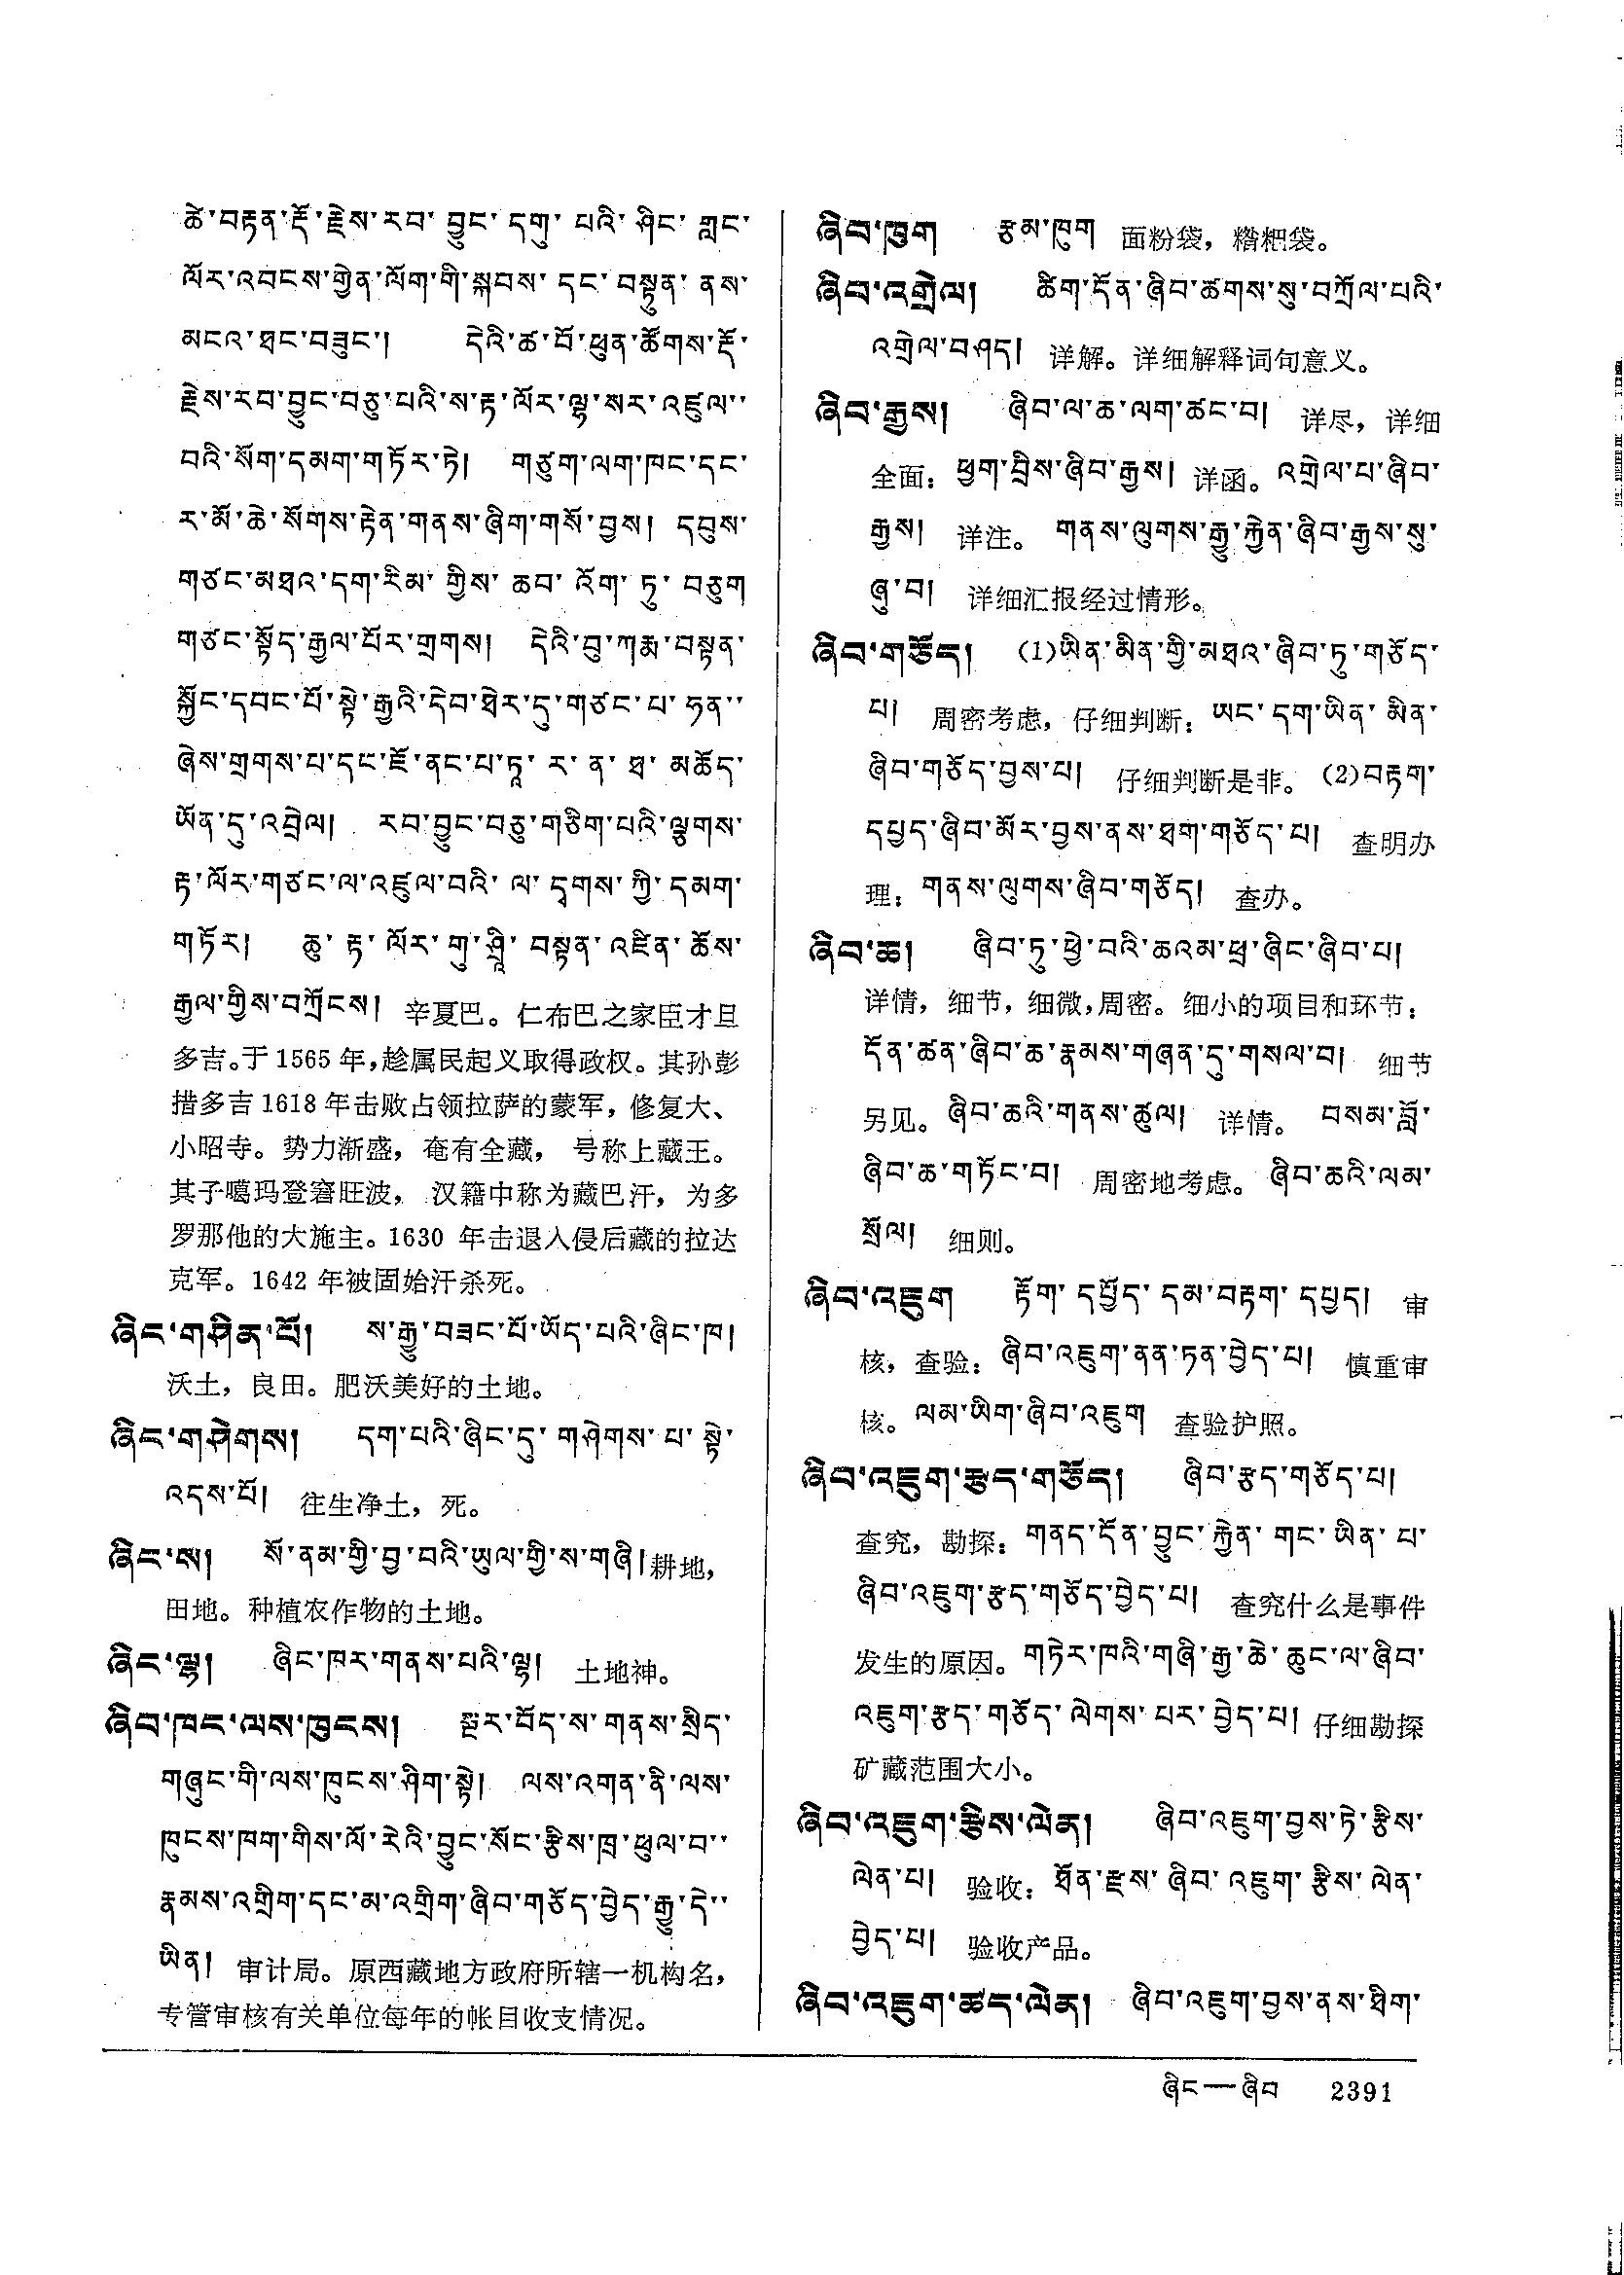 ཚེ་བརྟན་རྡོ་རྗེས་རབ་བྱུང་དགུ་པའི་ཤིང་གླང་
ལོར་འབངས་གྱེན་ལོག་གི་སྐབས་དང་བསྟུན་ནས་
མངའ་ཐང་བཟུང་། དེའི་ཚ་བོ་ཕུན་ཚོགས་རྡོ་
རྗེས་རབ་བྱུང་བཅུ་པའི་ས་རྟ་ལོར་ལྷ་སར་འཛུལ་་
བའི་སོག་དམག་གཏོར་ཏེ། གཙུག་ལག་ཁང་དང་
ར་མོ་ཆེ་སོགས་རྟེན་གནས་ཞིག་གསོ་བྱས། དབུས་
གཙང་མཐའ་དག་རིམ་གྱིས་ཆབ་འོག་ཏུ་བཅུག
གཙང་སྟོད་རྒྱལ་པོར་གྲགས། དེའི་བུ་ཀརྨ་བསྟན་
སྐྱོང་དབང་པོ་སྟེ་རྒྱའི་དེབ་ཐེར་དུ་གཙང་པ་ཧན་་
ཞེས་གྲགས་པ་དང་ཇོ་ནང་པ་ཏཱ་ར་ན་ཐ་མཆོད་
ཡོན་དུ་འབྲེལ། རབ་བྱུང་བཅུ་གཅིག་པའི་ལྕགས་
རྟ་ལོར་གཙང་ལ་འཛུལ་བའི་ལ་དྭགས་ཀྱི་དམག་
གཏོར། ཆུ་རྟ་ལོར་གུ་ཤྲཱི་བསྟན་འཛིན་ཆོས་
རྒྱལ་གྱིས་བཀྲོངས། 辛夏巴。仁布巴之家臣才旦
多吉。于1565年,趁属民起义取得政权。其孙彭
措多吉1618年击败占领拉萨的蒙军，修复大、
小昭寺。势力渐盛，奄有全藏， 号称上藏王。
其子噶玛登窘旺波， 汉籍中称为藏巴汗，为多
罗那他的大施主。1630 年击退入侵后藏的拉达
克军。1642年被固始汗杀死。
ཞིང་གཤིན་པོ། ས་རྒྱུ་བཟང་པོ་ཡོད་པའི་ཞིང་ཁ།
沃土，良田。肥沃美好的土地。
ཞིང་གཤེགས། དག་པའི་ཞིང་དུ་གཤེགས་པ་སྟེ་
འདས་པོ། 往生净土，死。
ཞིང་ས། སོ་ནམ་གྱི་བྱ་བའི་ཡུལ་གྱི་ས་གཞི།耕地，
田地。种植农作物的土地。
ཞིང་ལྷ། ཞིང་ཁར་གནས་པའི་ལྷ། 土地神。
ཞིབ་ཁང་ལས་ཁུངས། སྔར་བོད་ས་གནས་སྲིད་
གཞུང་གི་ལས་ཁུངས་ཤིག་སྟེ། ལས་འགན་ནི་ལས་
ཁུངས་ཁག་གིས་ལོ་རེའི་བྱུང་སོང་རྩིས་ཁྲ་ཕུལ་བ་་
རྣམས་འགྲིག་དང་མ་འགྲིག་ཞིབ་གཅོད་བྱེད་རྒྱུ་དེ་་
ཡིན། 审计局。原西藏地方政府所辖一机构名，
专管审核有关单位每年的帐目收支情况。
ཞིབ་ཁུག རྩམ་ཁུག 面粉袋，糌粑袋。
ཞིབ་འགྲེལ། ཚིག་དོན་ཞིབ་ཚགས་སུ་བཀྲོལ་པའི་
འགྲེལ་བཤད། 详解。详细解释词句意义。
ཞིབ་རྒྱས། ཞིབ་ལ་ཆ་ལག་ཚང་བ། 详尽，详细
全面：ཕྱག་བྲིས་ཞིབ་རྒྱས། 详函。འགྲེལ་པ་ཞིབ་
རྒྱས། 详注。གནས་ལུགས་རྒྱུ་རྐྱེན་ཞིབ་རྒྱས་སུ་
ཞུ་བ། 详细汇报经过情形。
ཞིབ་གཅོད། (1)ཡིན་མིན་གྱི་མཐའ་ཞིབ་ཏུ་གཅོད་
པ། 周密考虑，仔细判断：ཡང་དག་ཡིན་མིན་
ཞིབ་གཅོད་བྱས་པ། 仔细判断是非。(2)བརྟག་
དཔྱད་ཞིབ་མོར་བྱས་ནས་ཐག་གཅོད་པ། 查明办
理：གནས་ལུགས་ཞིབ་གཅོད། 查办。
ཞིབ་ཆ། ཞིབ་ཏུ་ཕྱེ་བའི་ཆའམ་ཕྲ་ཞིང་ཞིབ་པ།
详情，细节，细微,周密。细小的项目和环节：
དོན་ཚན་ཞིབ་ཆ་རྣམས་གཞན་དུ་གསལ་བ། 细节
另见。ཞིབ་ཆའི་གནས་ཚུལ། 详情。 བསམ་བློ་
ཞིབ་ཆ་གཏོང་བ། 周密地考虑。ཞིབ་ཆའི་ལམ་
སྲོལ། 细则。
ཞིབ་འཇུག རྟོག་དཔྱོད་དམ་བརྟག་དཔྱད། 审
核，查验：ཞིབ་འཇུག་ནན་ཏན་བྱེད་པ། 慎重审
核。ལམ་ཡིག་ཞིབ་འཇུག 查验护照。
ཞིབ་འཇུག་རྩད་གཅོད། ཞིབ་རྩད་གཅོད་པ།
查究，勘探：གནད་དོན་བྱུང་རྐྱེན་གང་ཡིན་པ་
ཞིབ་འཇུག་རྩད་གཅོད་བྱེད་པ། 查究什么是事件
发生的原因。གཏེར་ཁའི་གཞི་རྒྱ་ཆེ་ཆུང་ལ་ཞིབ་
འཇུག་རྩད་གཅོད་ལེགས་པར་བྱེད་པ། 仔细勘探
矿藏范围大小。
ཞིབ་འཇུག་རྩིས་ལེན། ཞིབ་འཇུག་བྱས་ཏེ་རྩིས་
ལེན་པ། 验收：ཐོན་རྫས་ཞིབ་འཇུག་རྩིས་ལེན་
བྱེད་པ། 验收产品。
ཞིབ་འཇུག་ཚད་ལེན། ཞིབ་འཇུག་བྱས་ནས་ཐིག་
ཞིང—ཞིབ 2391